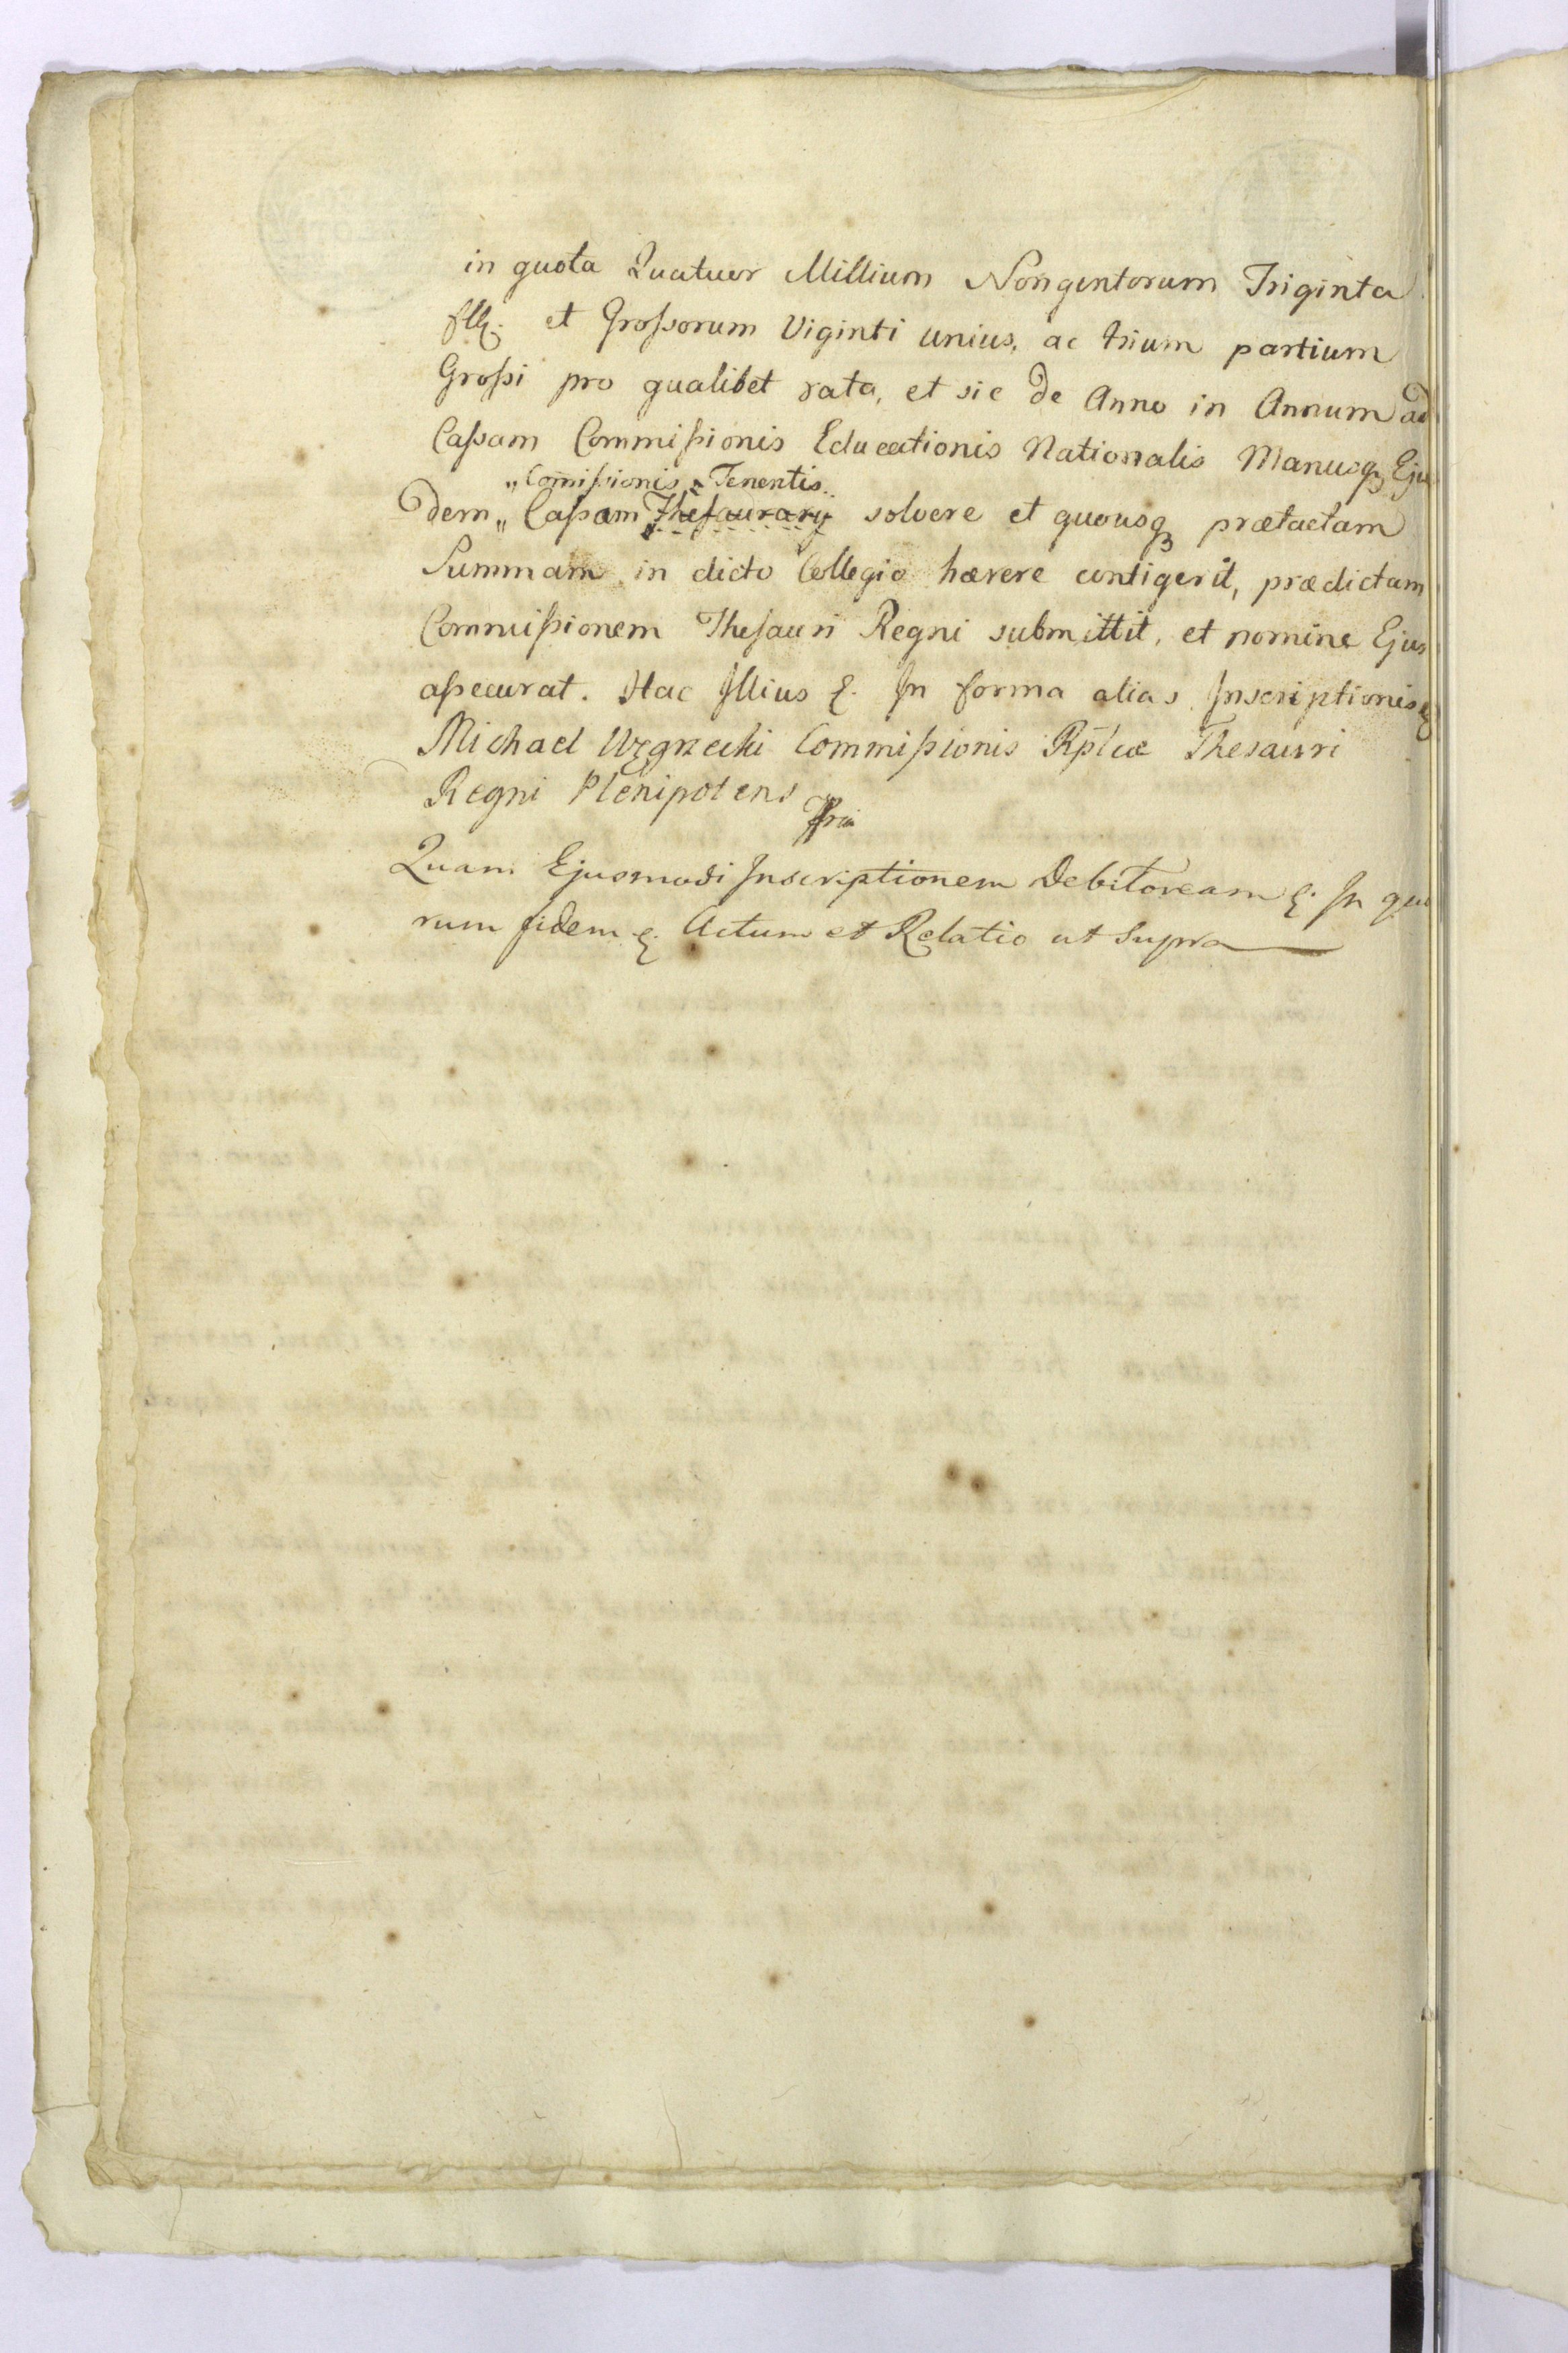 in quota Quatuor Millium Nongentorum Triginta
fll. et Groſsorum Viginti unius, ac trium partium
Groſsi pro qualibet rata, et sic de Anno in Annum ad
Caſsam Commiſsionis Educationis Nationalis Manusq̨ Eju
„Com̃iſsionis „ Tenentis
dem „ Caſsam Theſaurarij solvere et quousq̨ prætactam
Summam in dicto Collegio hærere contigerit, prædictam
Commiſsionem Theſauri Regni submittit, et nomine Ejus
aſsecurat. Hac Illius &. In forma alias Inscriptionis &
Michael Uzgrzecki Commiſsionis Rptcæ Thesauri
Regni Plenipotens
Quam Ejusmodi Inscriptionem Debitoream &. In quo
rum fidem &. Actum et Relatio ut Supra